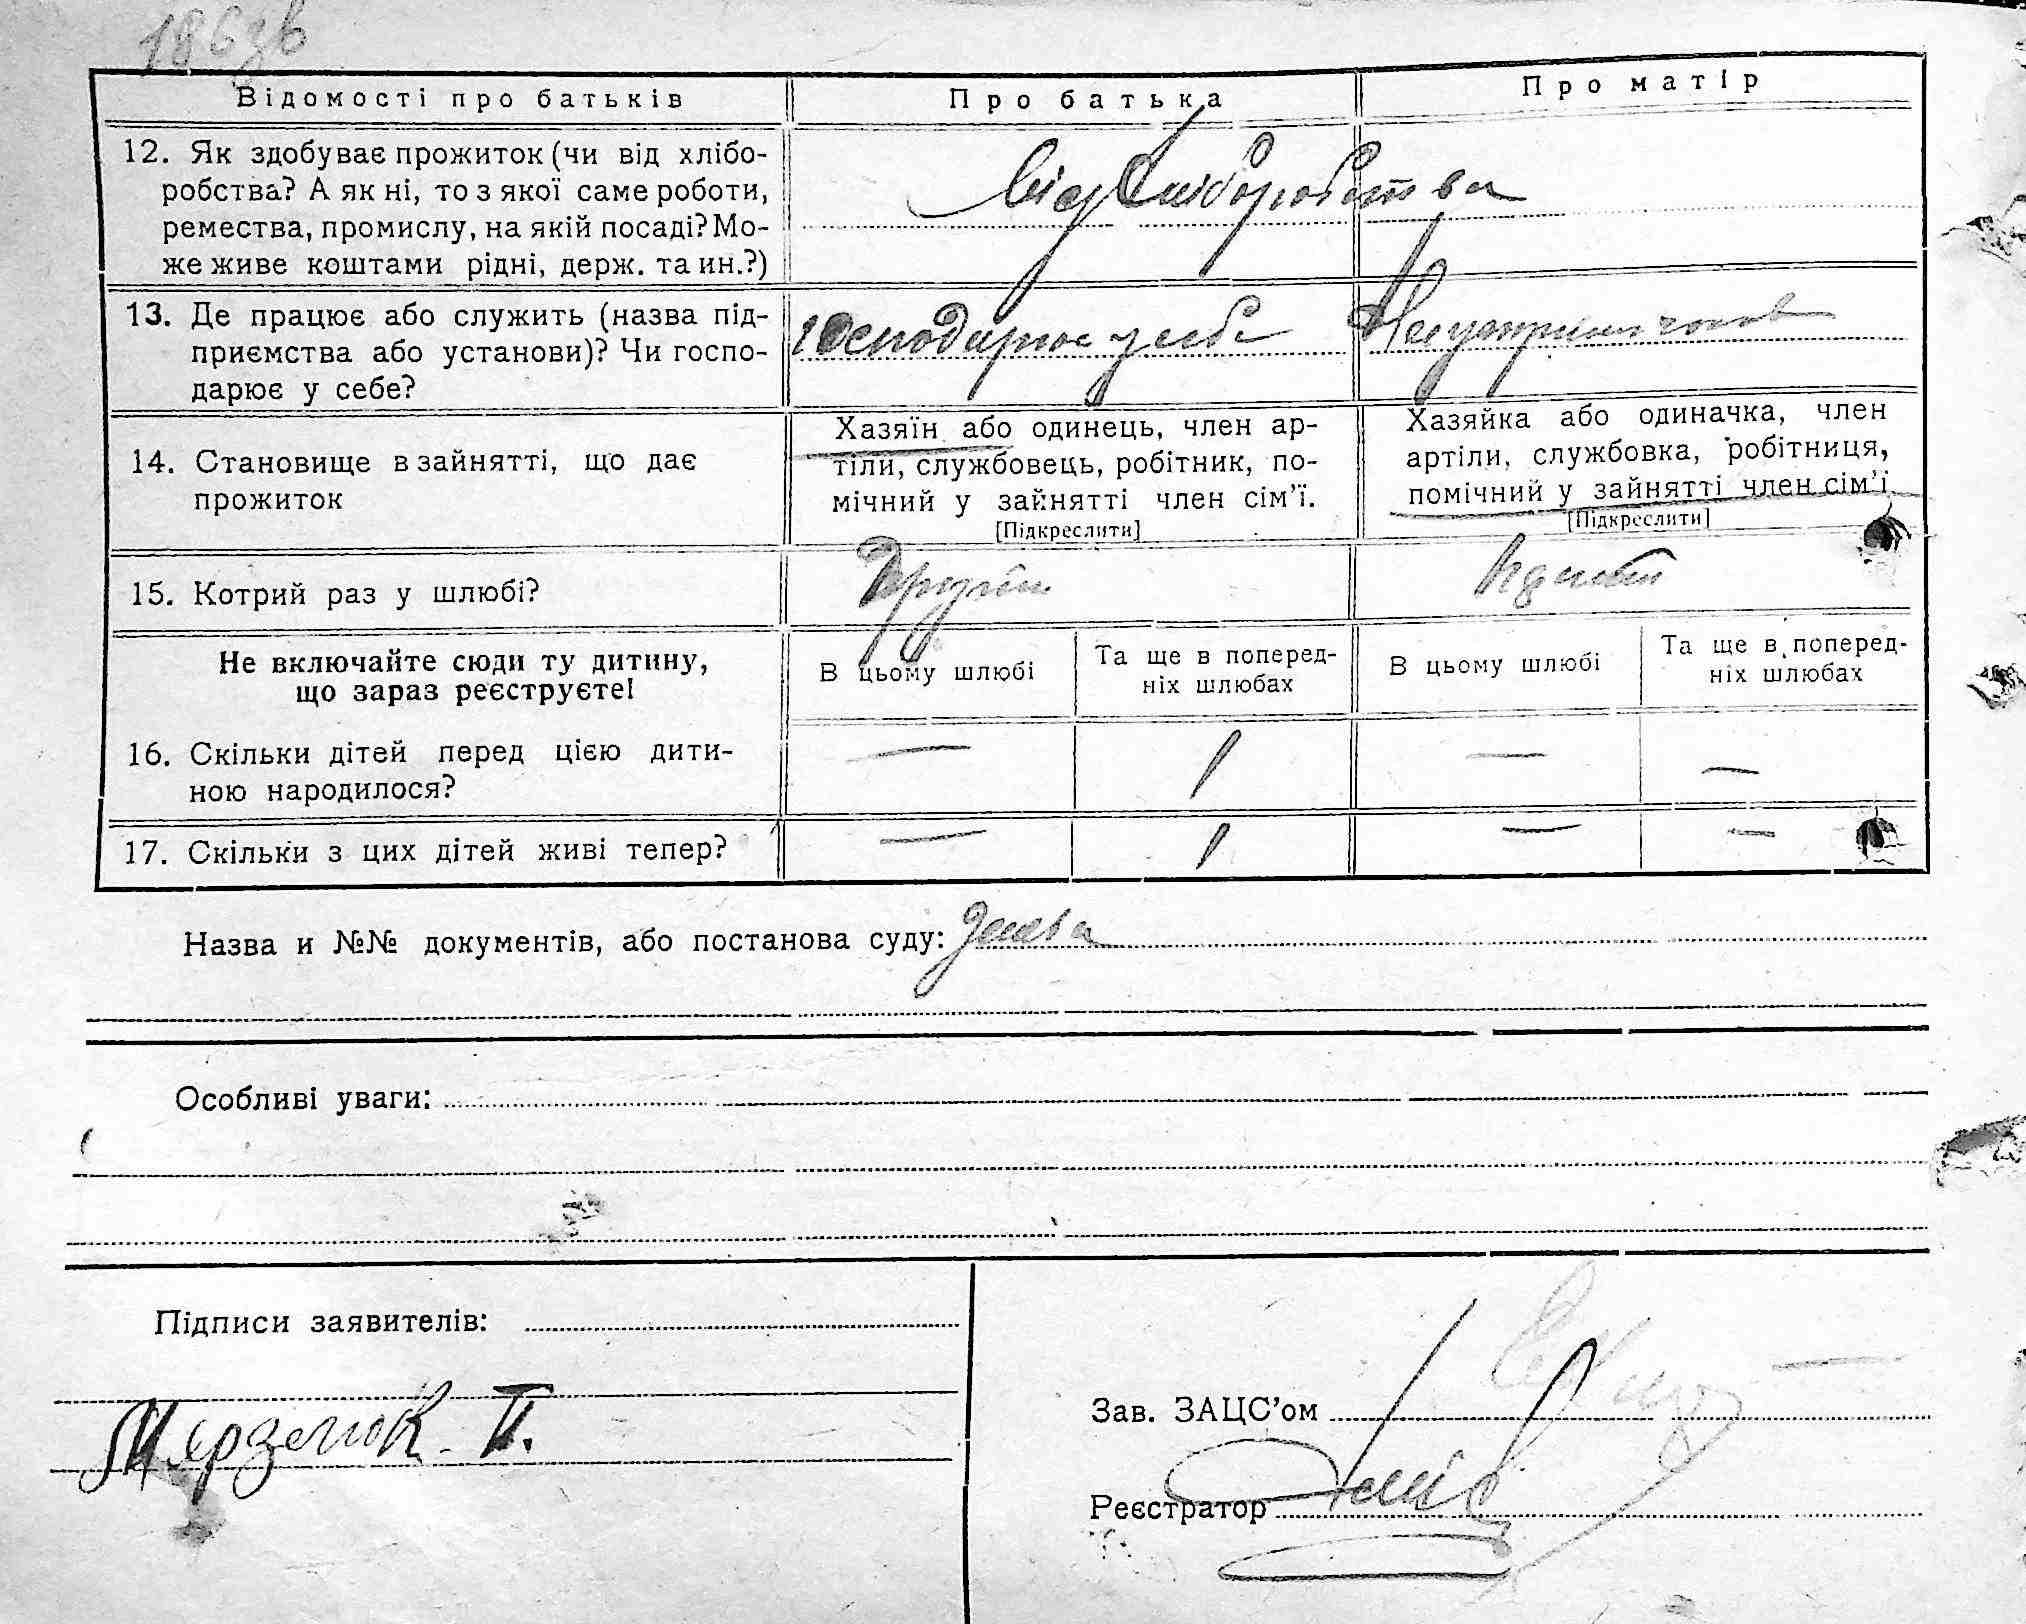 186 зв
Відомості про батьків
Про батька
Про матір
12. Як здобуває прожиток (чи від хлібо-
робства? А як ні, то з якої саме роботи,
ремества, промислу, на якій посаді? Мо-
же живе коштами рідні, держ. та ин.?)
від хліборобства
13. Де працює або служить (назва під-
приємства або установи)? Чи госпо-
дарює у себе?
господарює у себе
На утриманні чолов
14. Становище в зайнятті, що дає
прожиток
Хазяїн або одинець, член ар-
тіли, службовець, робітник, по-
мічний у зайнятті член сім'ї.
[Підкреслити]
Хазяйка або одиначка, член
артіли, службовка, робітниця,
помічний у зайнятті член сім'ї
[Підкреслити]
15. Котрий раз у шлюбі?
Другий
Не включайте сюди ту дитину,
що зараз реєструєте!
В цьому шлюбі
Та ще в поперед-
ніх шлюбах
В цьому шлюбі
Та ще в поперед-
ніх шлюбах
16. Скільки дітей перед цією дити-
ною народилося?
— 1 — —
17. Скільки з цих дітей живі тепер?
— 1 — —
Назва и №№ документів, або постанова суду: Заява
Особливі уваги:
Підписи заявителів:
Мерзлюк П.
Зав. ЗАЦС'ом
Реєстратор